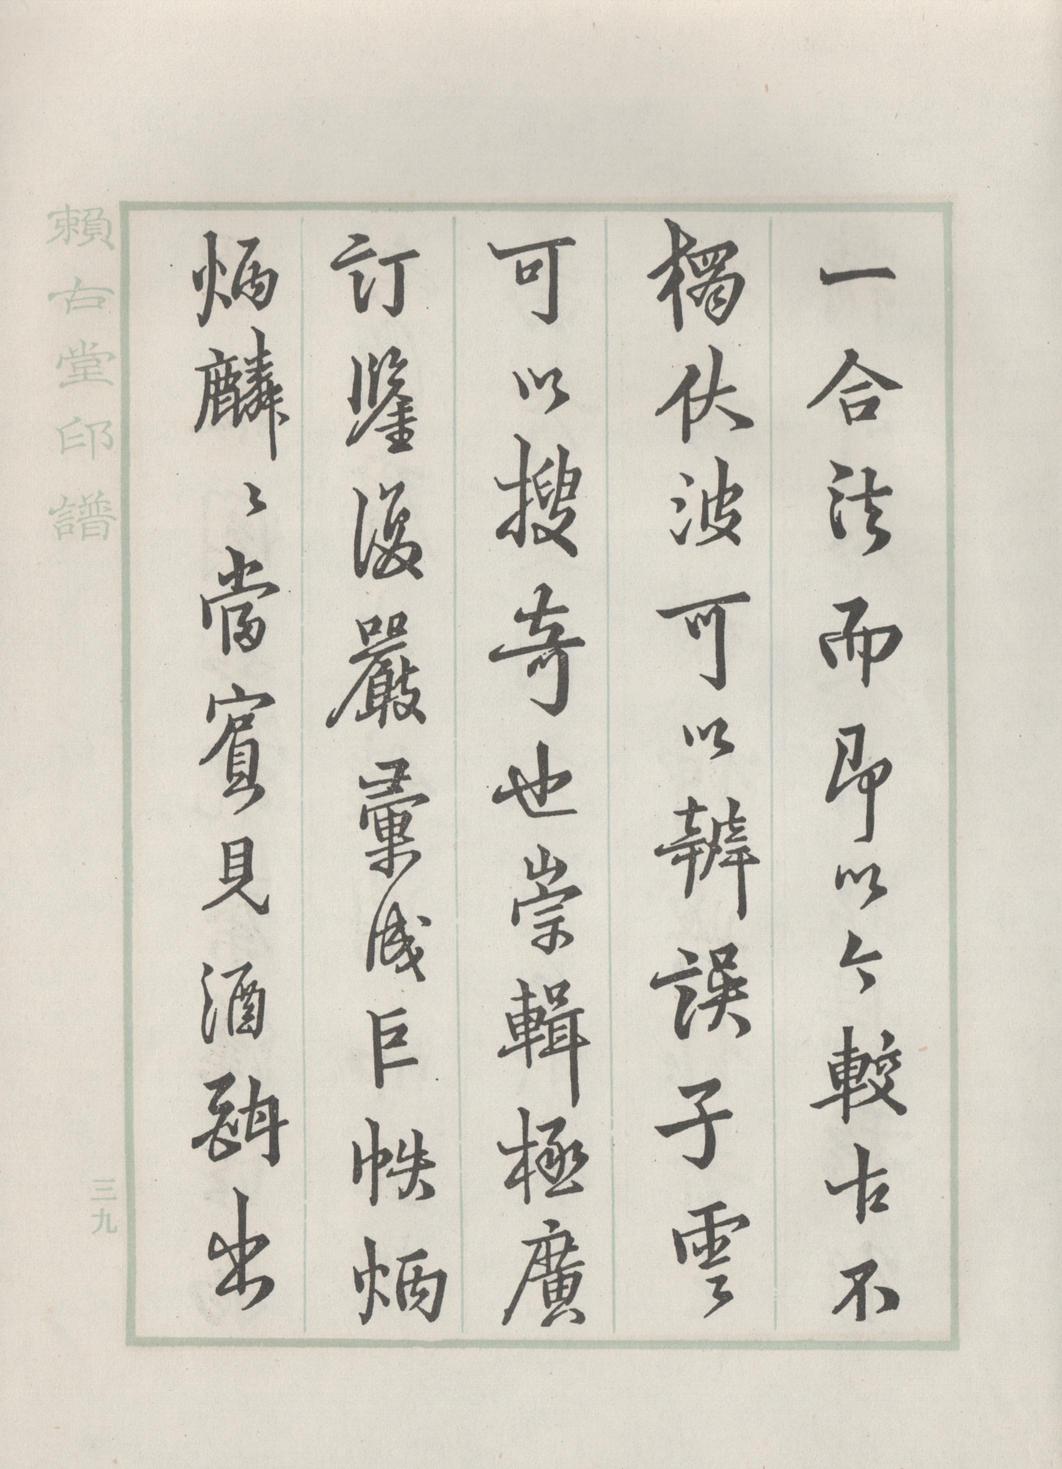 一合法而即以今較古不
獨伏波可以辨誤子雲
可以搜奇也崇輯極廣
訂鑒復嚴彙成巨帙炳
炳麟〻當賓見酒酣出
賴古堂印譜
三九